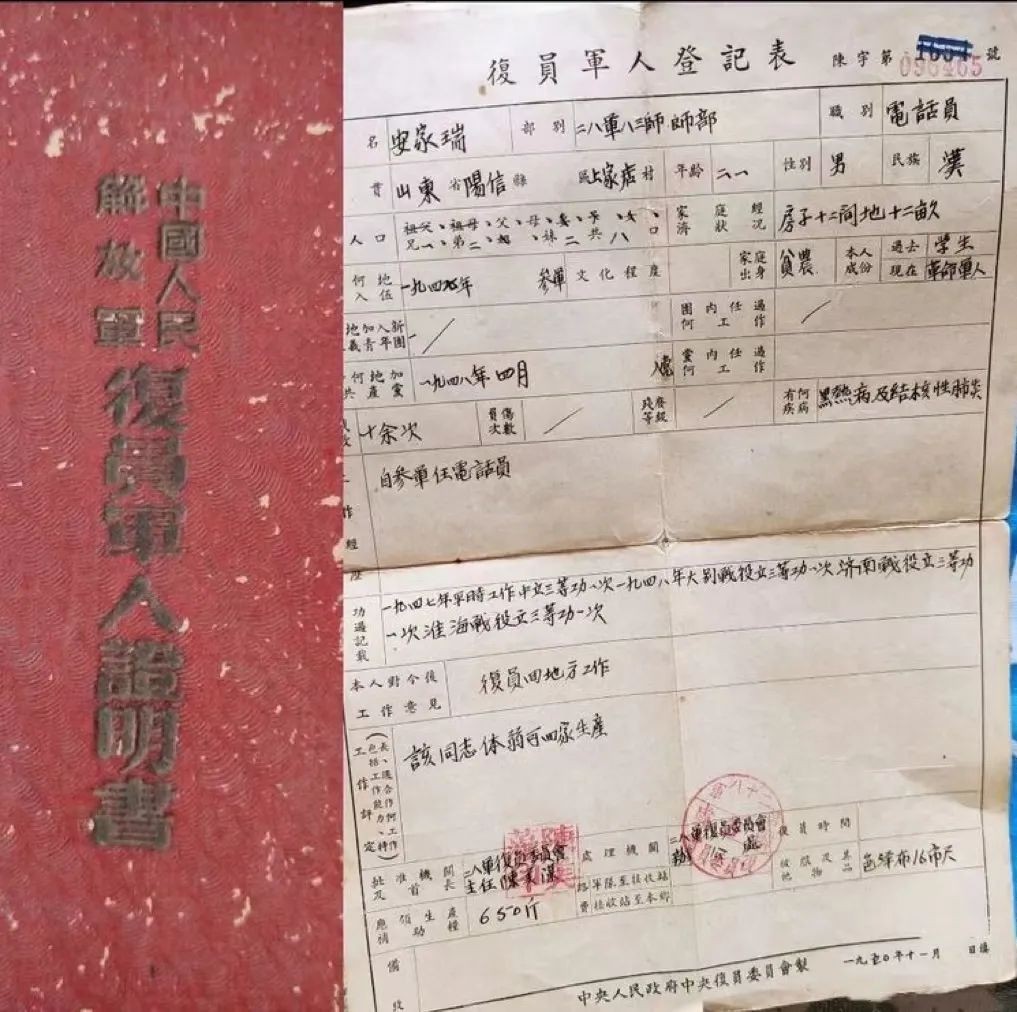 中國人民
解放軍
復員軍人證明書
復員軍人登記表 陳字第 096465 號
名 安家瑞 部別 二八軍八三師師部 職別 電話員
山東省陽信縣 家店村 年齡 二一 性別 男 民族 漢
人口 祖父、祖母、父、母、妻、子、女、兄一、弟二、妹二共八口 家庭經濟狀況 房子十二間地十二畝
何地入伍 一九四 年 參軍 文化程度 家庭出身 貧農 本人成份 過去 學生 現在 革命軍人
地加入新 義青年團 團內任過何工作
何地加 共產黨 一九四八年四月 入党 黨內任過何工作
十余次 負傷次數 殘廢等級 有何疾病 黑熱病及结核性肺炎
作經歷 自參軍任電話員
功過記載 一九四七年平時工作中立三等功一次一九四八年大别戰役立三等功一次济南戰役立三等功
一次淮海戰役立三等功一次
本人對今後工作意見 復員回地方工作
工作評定 該同志体弱可回家生產
批准機關及首長 二八軍復員委員會 主任陳 處理機關 二八軍復員委員會 復員時間
路費 軍隊至接收站 接收站至本鄉 被服及其他物品 色洋布16市尺
應領生產補助糧 650斤
備
中央人民政府中央復員委員會製 一九五〇年十一月 日填